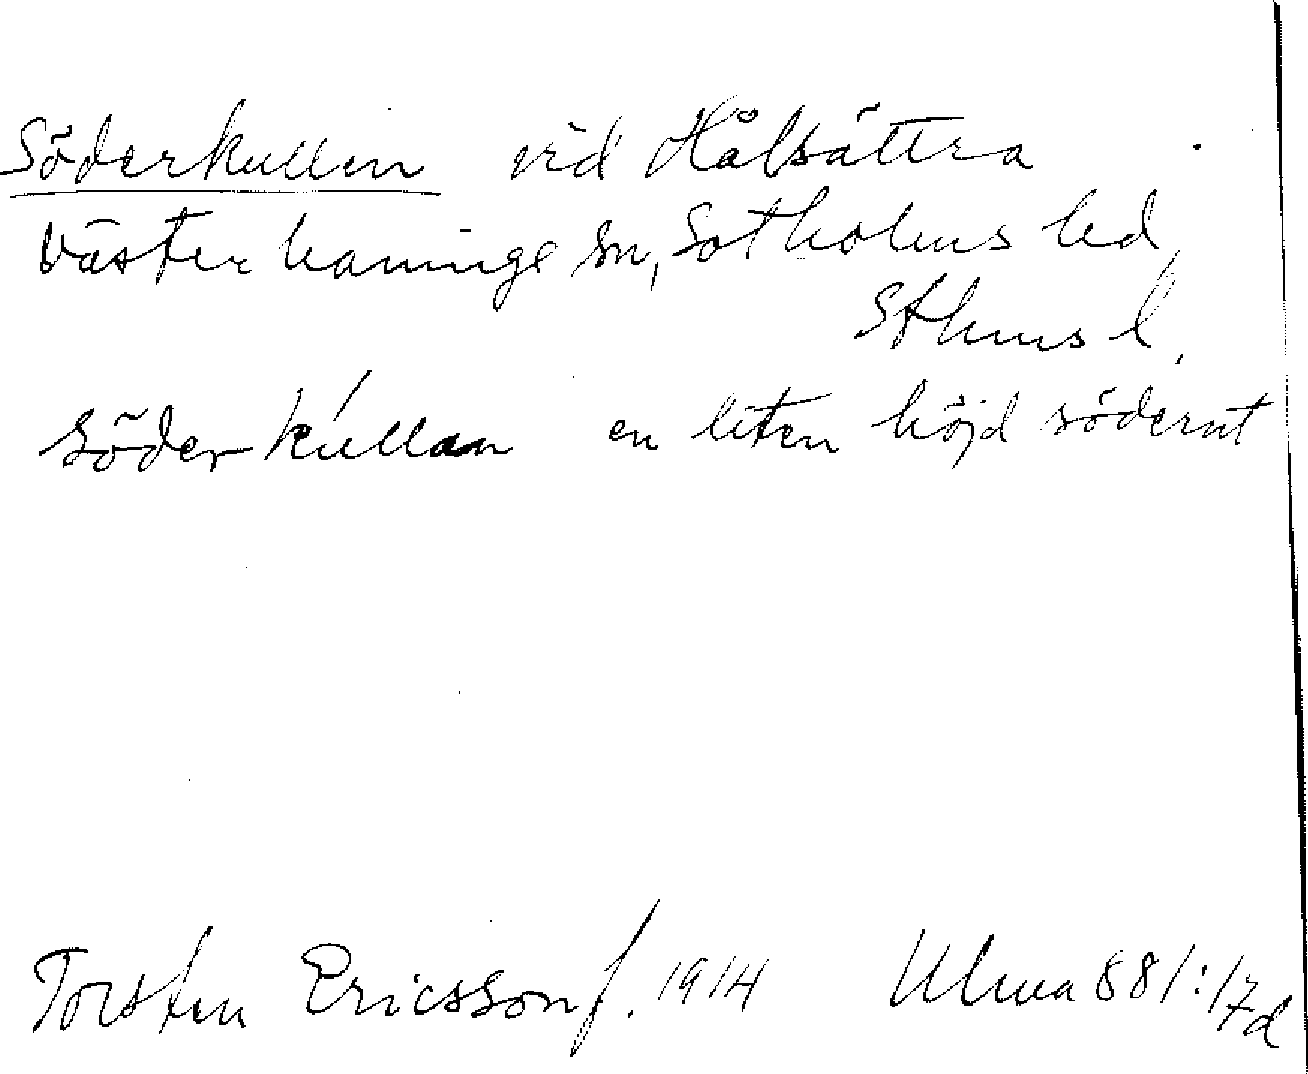 Söderkullen vid Hålsättra
Västerhaninge sn, Sotholms hd,
Sthms l.
söderkullan en liten höjd söderut
Torsten Ericsson f. 1914 Ulma 881:17d